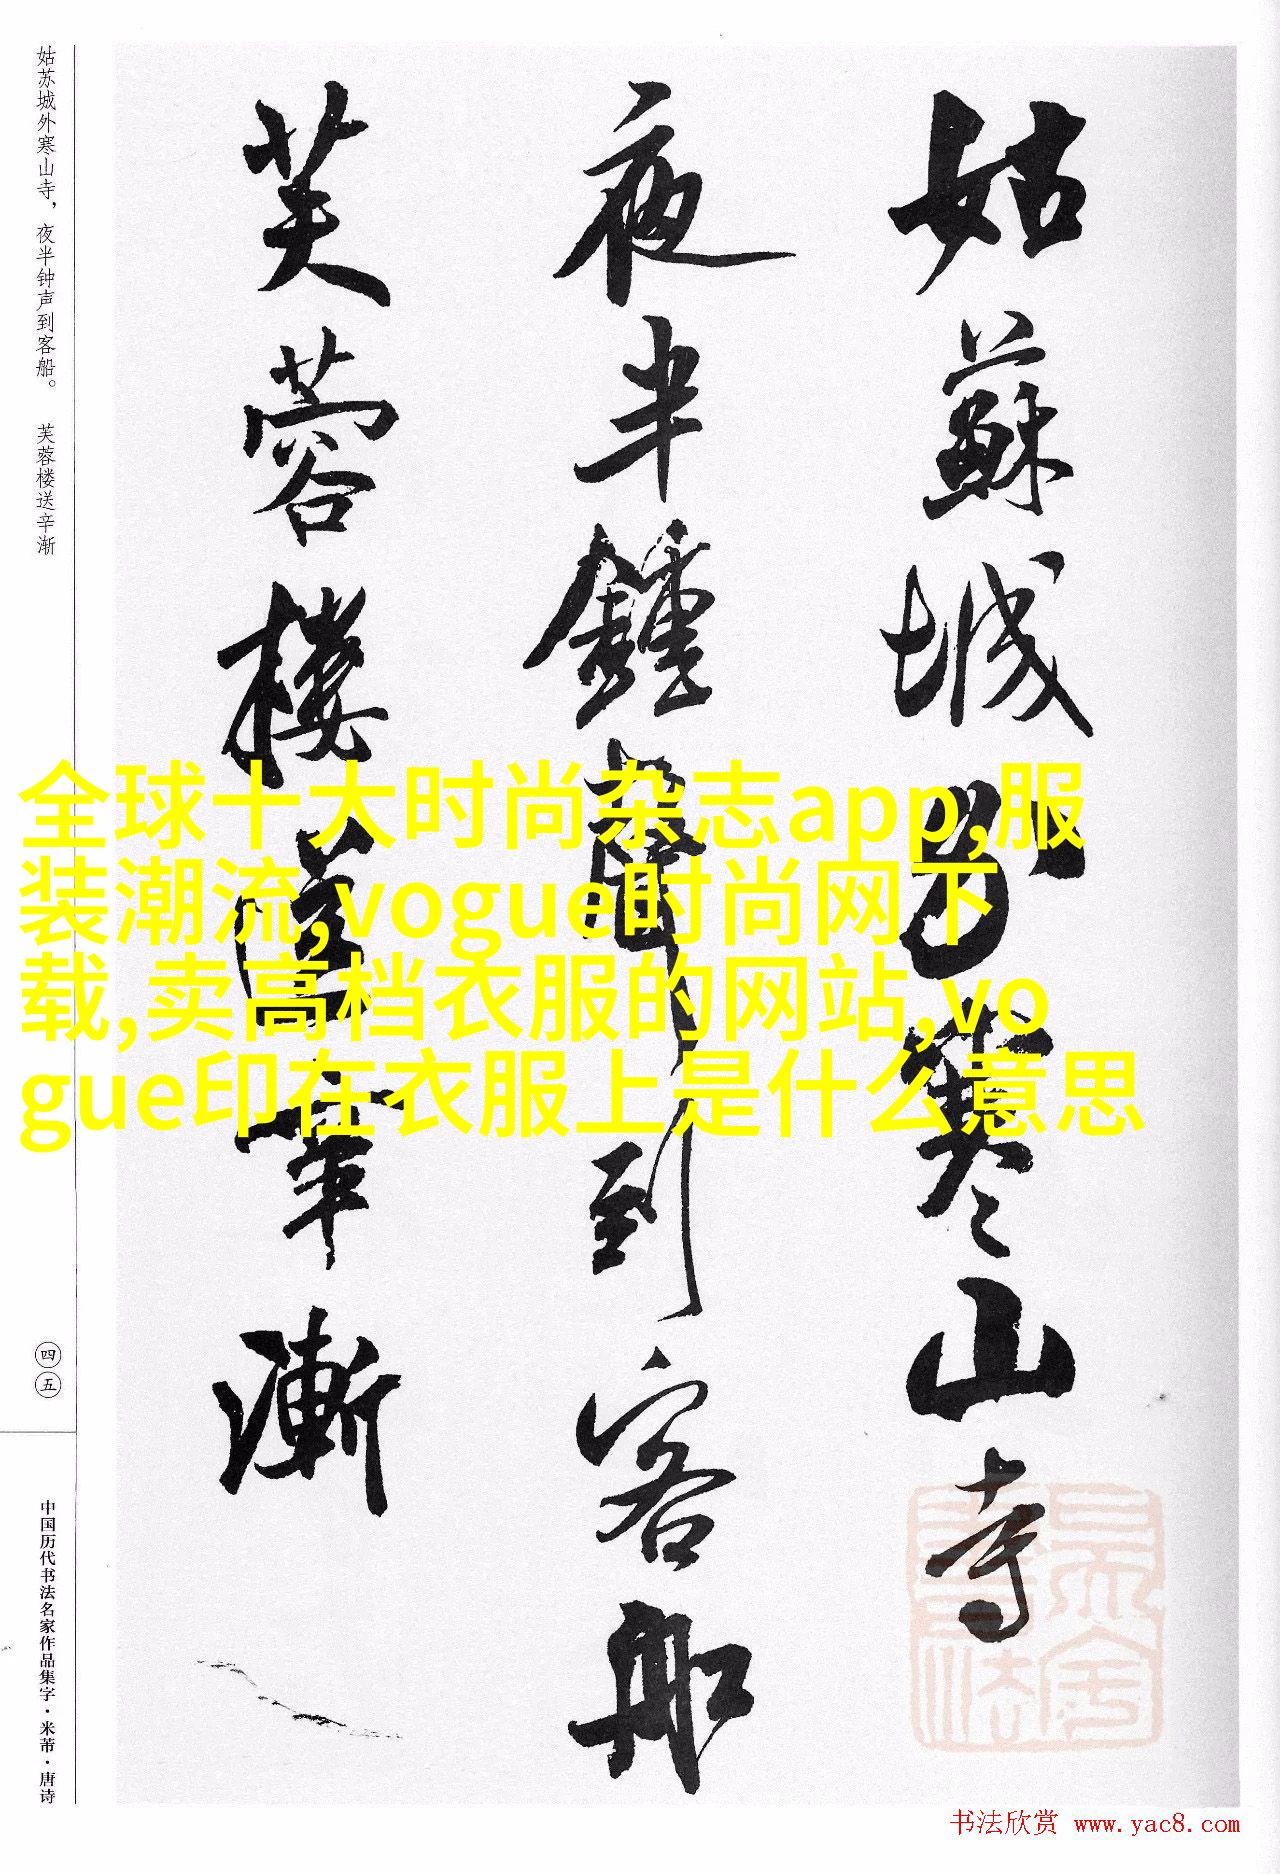 姑蘇城外寒山寺
夜半鍾聲到客船
芙蓉樓送辛漸
姑苏城外寒山寺，夜半钟声到客船。 芙蓉楼送辛渐
四五
中国历代书法名家作品集字·米芾·唐诗
全球十大时尚杂志app,服
装潮流,vogue时尚网下
载,卖高档衣服的网站,vo
gue印在衣服上是什么意思
书法欣赏 www.yac8.com